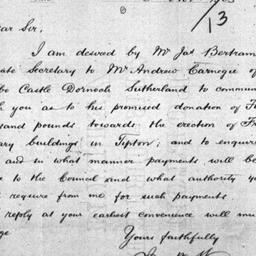 /13
ear Sir,
I am desired by Mr Jas Bertram
ate Secretary to Mr Andrew Carnegie of
bo Castle Dornoch Sutherland to commun
h you as to his promised donation of
sand pounds towards the erection of Fr
ary buildings in Tipton; and to enquire
and in what manner payments will be
e to the Council and what authority y
require from me for such payments.
reply at your earliest convenience will mu
ge
Yours faithfully